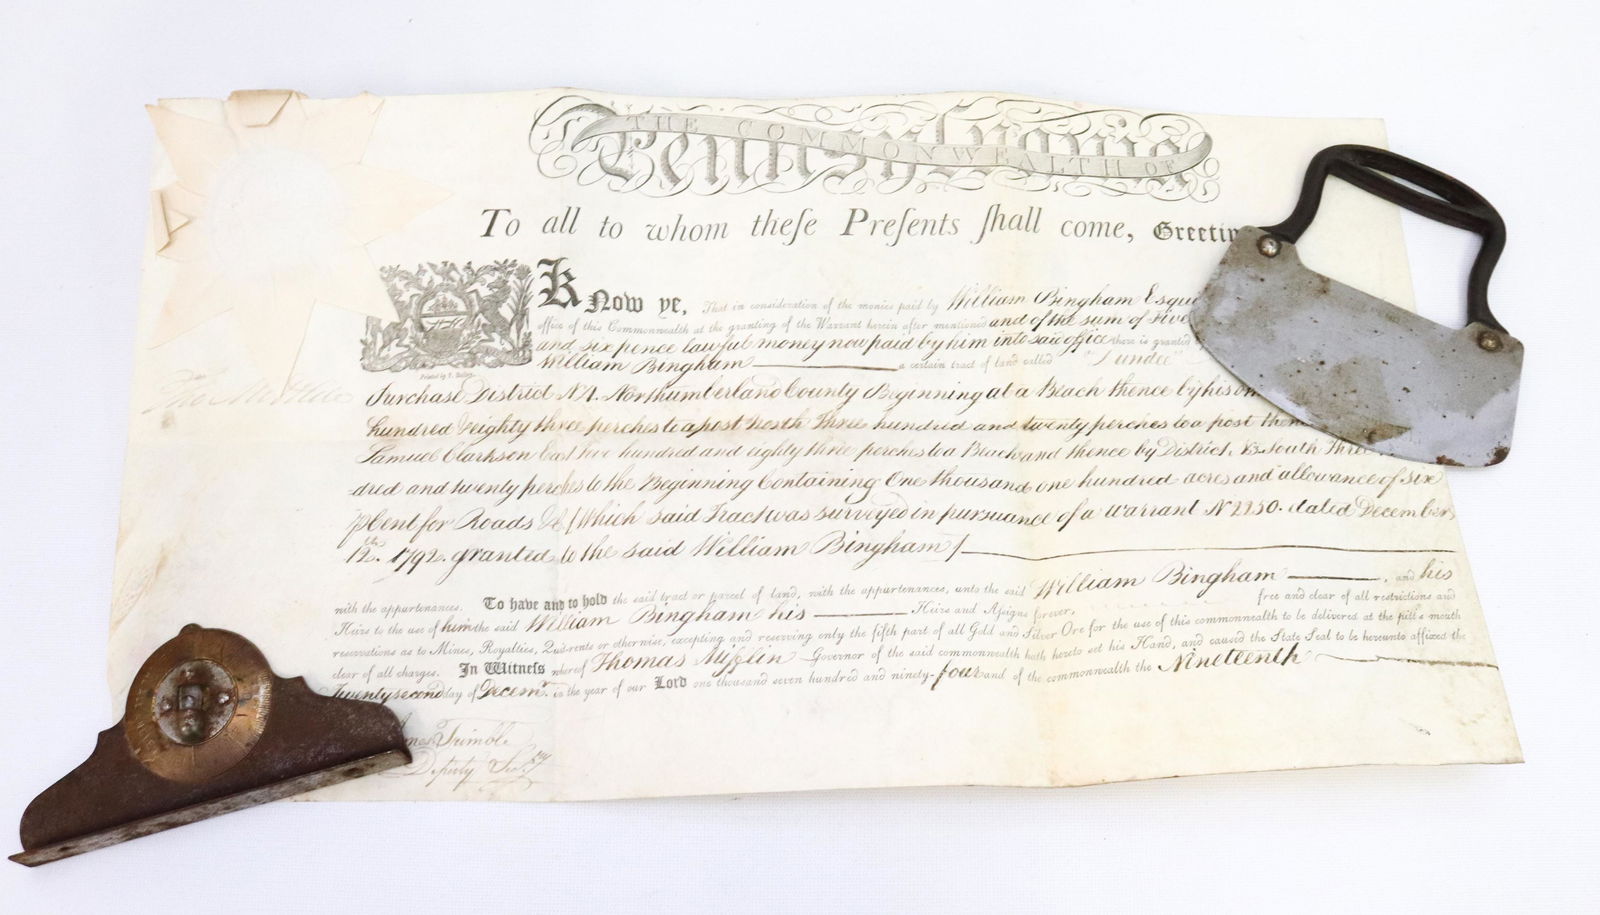 THE COMMONWEALTH OF
Pennsylvania
To all to whom theſe Preſents ſhall come, Greetin
Know ye, That in consideration of the monies paid by William Bingham Esqui
office of this Commonwealth at the granting of the Warrant herein after mentioned and of the sum of Five
and six pence lawful money now paid by him into said office there is granted
William Bingham a certain tract of land called "Dundee"
Printed by F. Bailey.
Purchase District No. 4. Northumberland County Beginning at a Beach thence by his
hundred & eighty three perches to a post North Three hundred and twenty perches to a post then
Samuel Clarkson East five hundred and eighty three perches to a Beach and thence by District, South Three
dred and twenty perches to the Beginning Containing One thousand one hundred acres and allowance of six
pCent for Roads &c (Which said Tract was surveyed in pursuance of a Warrant No 2250. dated December
12th. 1792. granted to the said William Bingham)
with the appurtenances. To have and to hold the said tract or parcel of land, with the appurtenances, unto the said William Bingham, and his
Heirs to the use of him the said William Bingham his Heirs and Aſsigns forever, free and clear of all restrictions and
reservations as to Mines, Royalties, Quit-rents or otherwise, excepting and reserving only the fifth part of all Gold and Silver Ore for the use of this commonwealth to be delivered at the pitt's mouth
clear of all charges. In Witneſs whereof Thomas Mifflin Governor of the said commonwealth hath hereto set his Hand, and caused the State Seal to be hereunto affixed the
Twenty second day of Decemr. in the year of our Lord one thousand seven hundred and ninety-four and of the commonwealth the Nineteenth
Tho Mifflin
mes Trimble
Deputy Secy